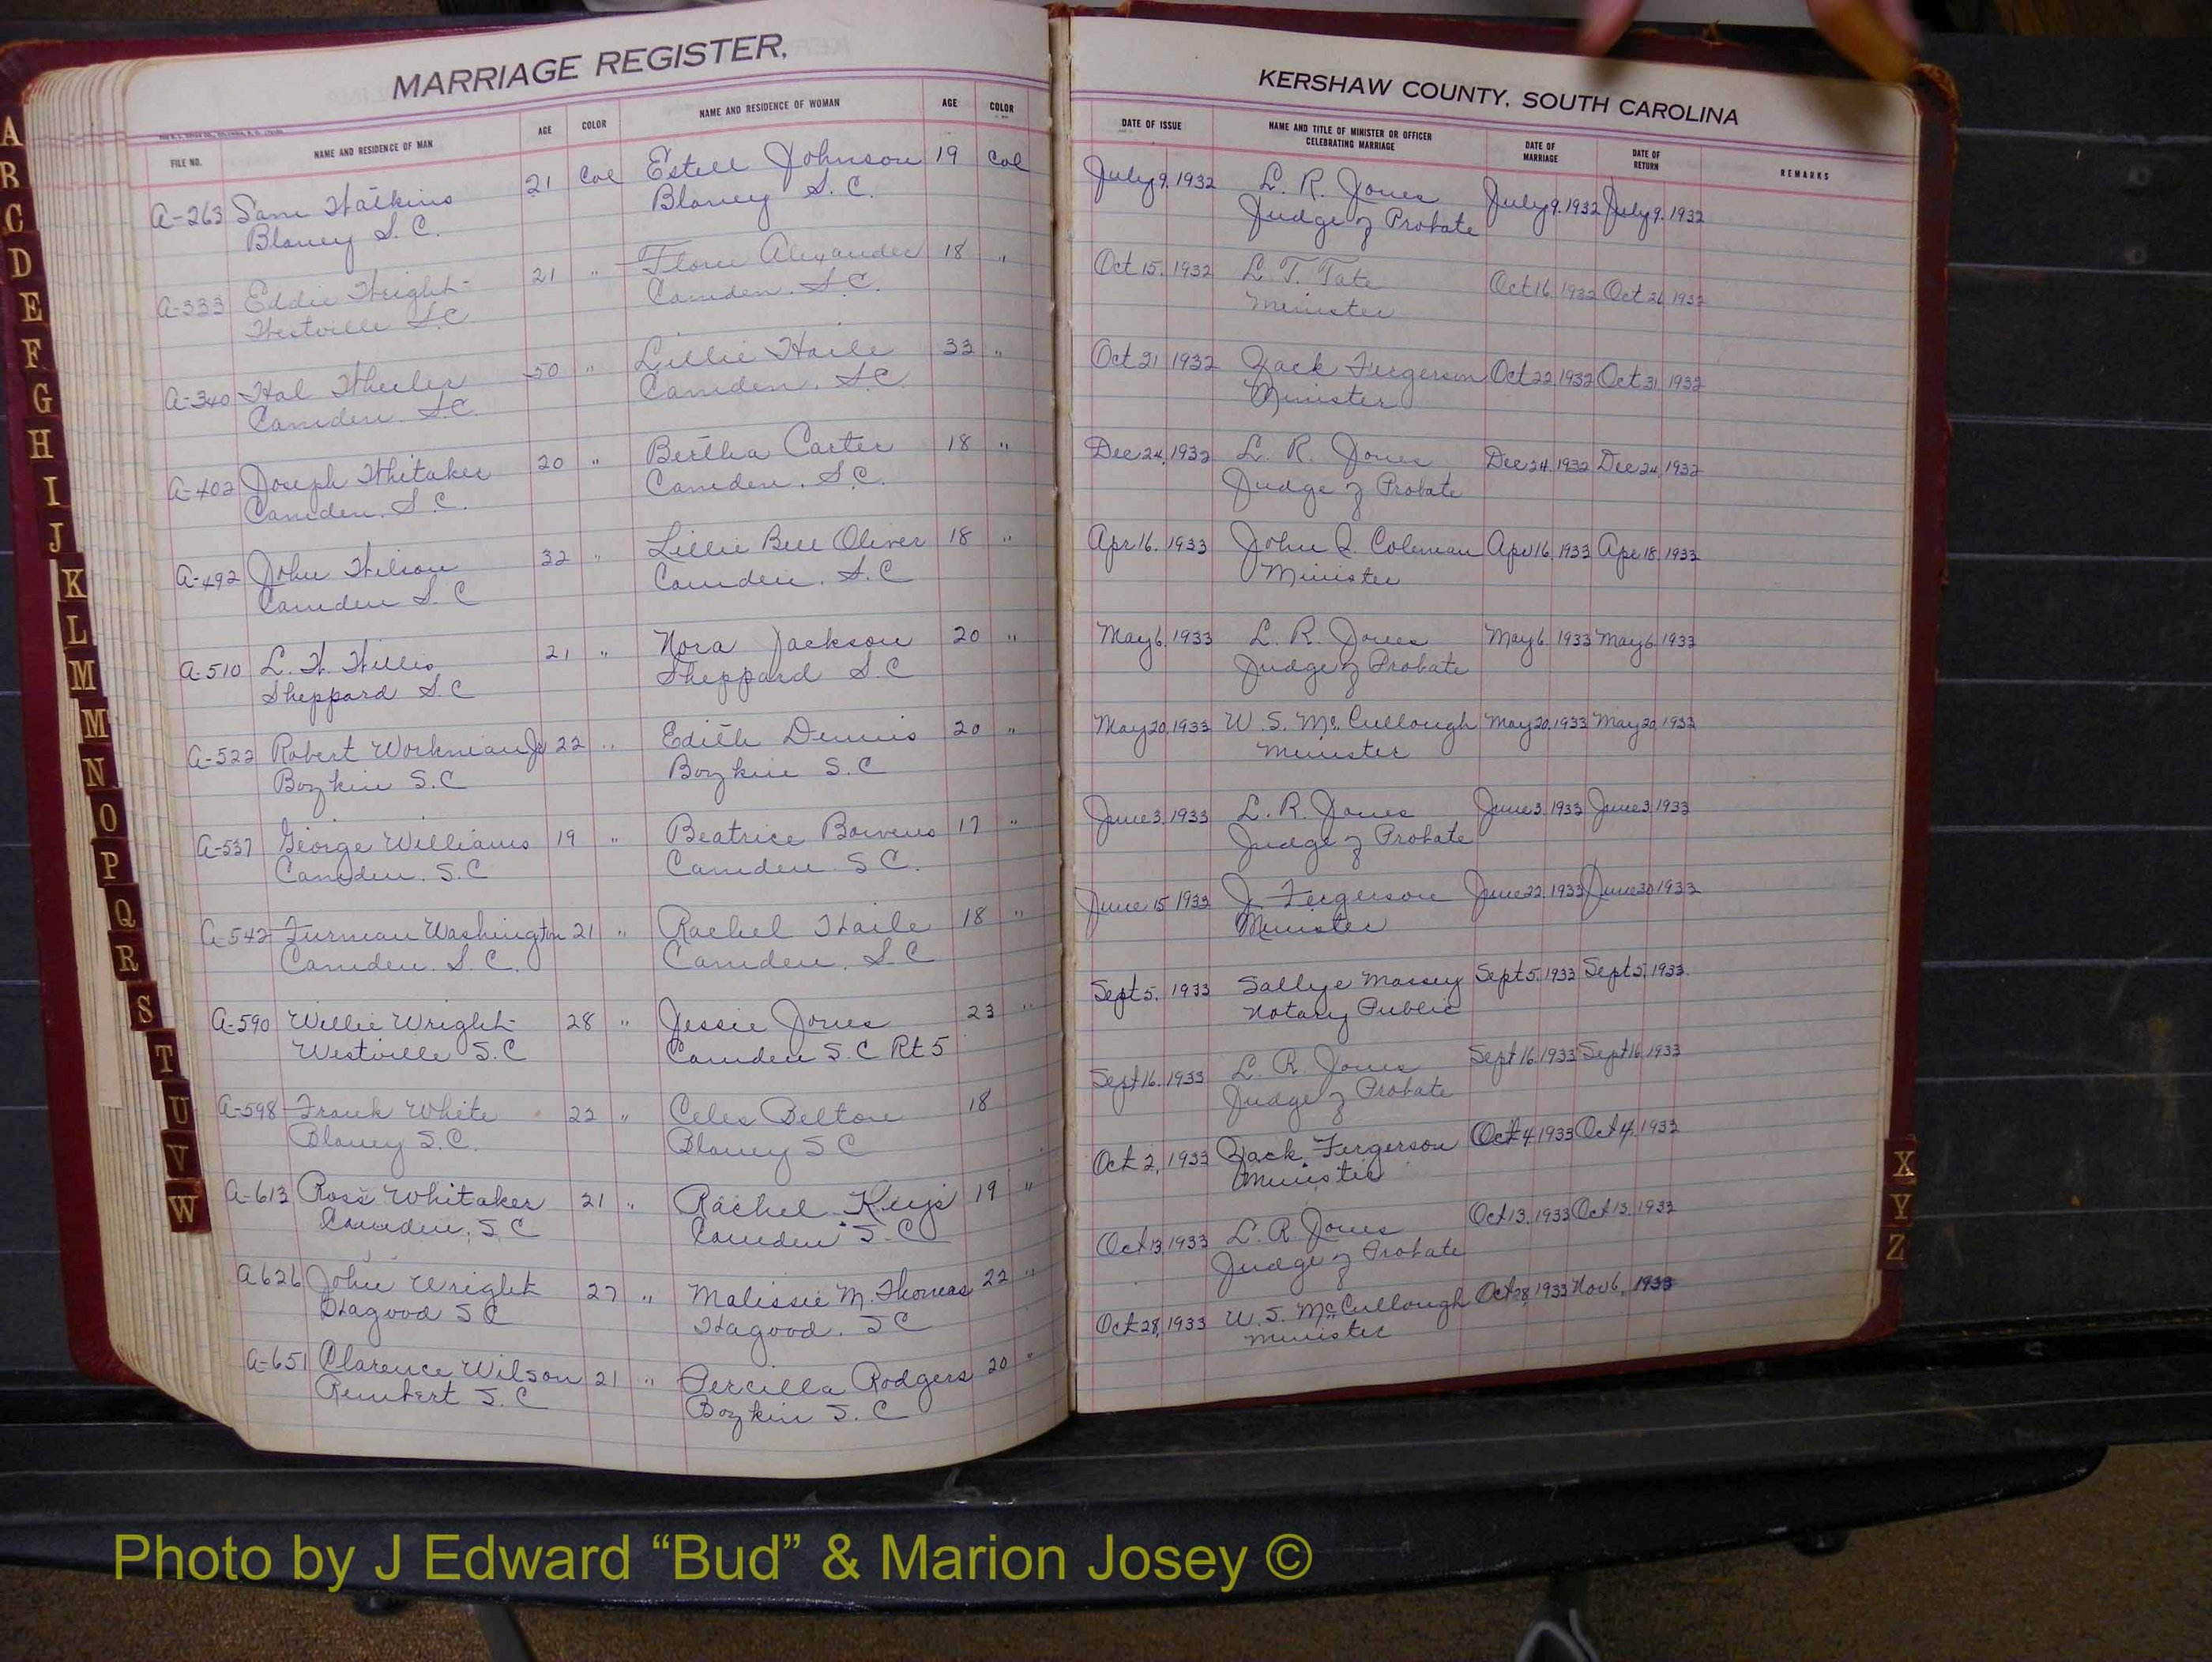 MARRIAGE REGISTER,
FILE NO.
NAME AND RESIDENCE OF MAN
AGE
COLOR
NAME AND RESIDENCE OF WOMAN
AGE
COLOR
A-263 Sam Watkins 21 Col Estell Johnson 19 Col
Blaney S. C. Blaney S. C.
A-333 Eddie Wright 21 " Flori Alexander 18 "
Westville S.C Camden. S.C.
A-340 Hal Wheeler 50 " Lillie Haile 33 "
Camden. S.C. Camden. S.C.
A-402 Joseph Whitaker 20 " Bertha Carter 18 "
Camden. S.C. Camden. S.C.
A-492 John Wilson 32 " Lillie Bell Oliver 18 "
Camden S.C Camden. S.C
A-510 L. W. Willis 21 " Nora Jackson 20 "
Sheppard S.C Sheppard S.C
A-522 Robert Workman Jr 22 " Edith Dennis 20 "
Boykin S.C Boykin S.C
A-537 George Williams 19 " Beatrice Bowens 17 "
Camden. S.C Camden S.C.
A-542 Furman Washington 21 " Rachel Haile 18 "
Camden. S.C. Camden. S.C
A-590 Willie Wright 28 " Jessie Jones 23 "
Westville S.C Camden S.C Rt 5
A-598 Frank White 22 " Celes Belton 18
Blaney S.C. Blaney S C
A-613 Ross Whitaker 21 " Rachel Keys 19 "
Camden, S.C Camden S.C
A626 John Wright 27 " Malissie M. Thomas 22 "
Hagood S C Hagood. S C
A-651 Clarence Wilson 21 " Percilla Rodgers 20 "
Rembert S.C Boykin S.C
KERSHAW COUNTY, SOUTH CAROLINA
DATE OF ISSUE
NAME AND TITLE OF MINISTER OR OFFICER
CELEBRATING MARRIAGE
DATE OF
MARRIAGE
DATE OF
RETURN
REMARKS
July 9, 1932 L. R. Jones July 9. 1932 July 9. 1932
Judge of Probate
Oct 15, 1932 L. T. Tate Oct 16 1932 Oct 26 1932
Minister
Oct 21 1932 Zack Furgerson Oct 22 1932 Oct 31, 1932
Minister
Dec 24, 1932 L. R. Jones Dec 24, 1932 Dec 24, 1932
Judge of Probate
Apr 16. 1933 John Coleman Apr 16, 1933 Apr 18, 1933
Minister
May 6, 1933 L. R. Jones May 6, 1933 May 6, 1933
Judge of Probate
May 20, 1933 W. S. McCullough May 20, 1933 May 20, 1933
Minister
June 3, 1933 L. R. Jones June 3, 1933 June 3, 1933
Judge of Probate
June 15 1933 J. Fergerson June 22, 1933 June 30 1933
Minister
Sept 5, 1933 Sallye Massey Sept 5, 1933 Sept 5, 1933
Notary Public
Sept 16. 1933 L. R. Jones Sept 16, 1933 Sept 16, 1933
Judge of Probate
Oct 2, 1933 Zack Furgerson Oct 4 1933 Oct 4, 1933
Minister
Oct 13, 1933 L. R. Jones Oct 13, 1933 Oct 13, 1933
Judge of Probate
Oct 28, 1933 W. S. McCullough Oct 28, 1933 Nov 6, 1933
Minister
A
B
C
D
E
F
G
H
I
J
K
L
M
M
N
O
P
Q
R
S
T
U
V
W
X
Y
Z
Photo by J Edward “Bud” & Marion Josey ©